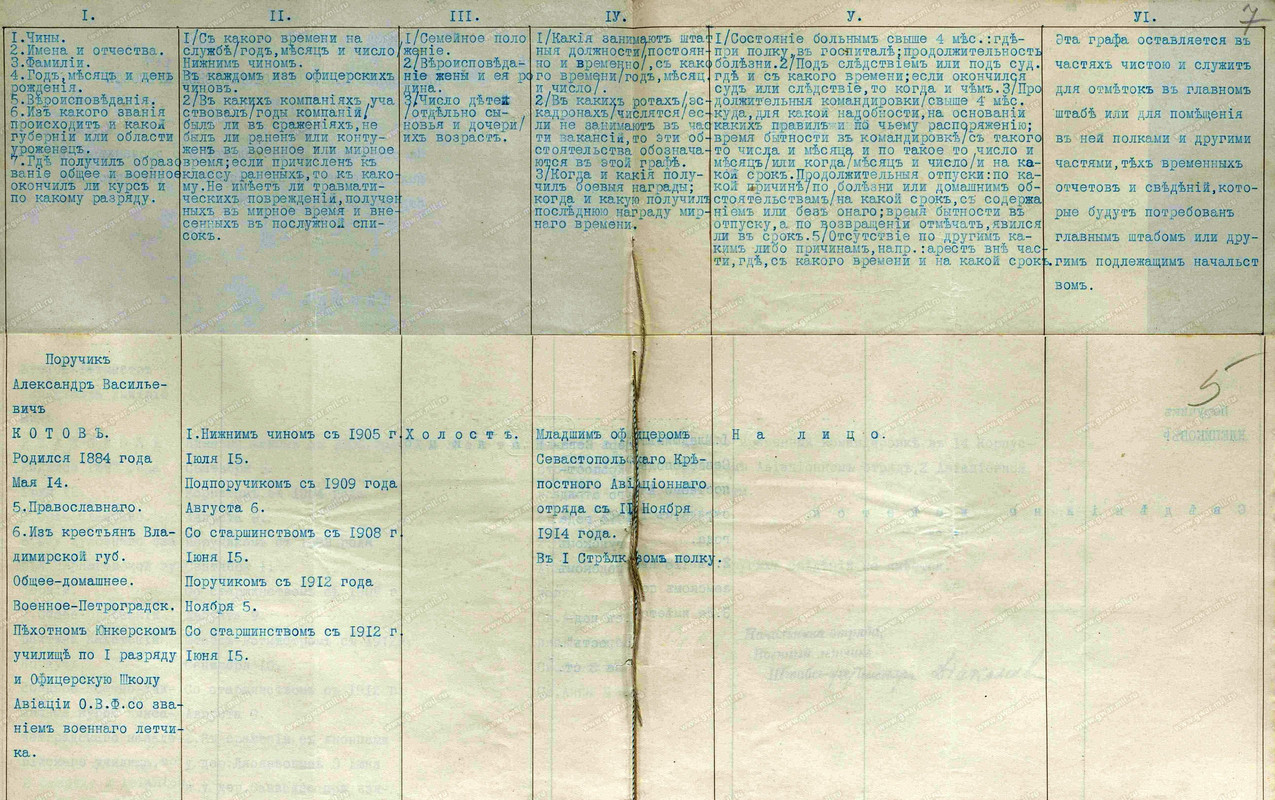 7
I.
II.
III.
IУ.
У.
УI.
I.Чины.
2.Имена и отчества.
3.Фамиліи.
4.Годъ,мѣсяцъ и день
рожденія.
5.Вѣроисповѣданія.
6.Изъ какого званія
происходитъ и какой
губерніи или области
уроженецъ.
7.Гдѣ получил образо
ваніе общее и военное
окончил ли курсъ и
по какому разряду.
I/Съ какого времени на
службѣ/годъ,мѣсяцъ и число/
Нижнимъ чиномъ.
Въ каждомъ изъ офицерскихъ
чиновъ.
2/Въ какихъ компаніяхъ уча
ствовалъ/годы компаній/
былъ ли въ сраженіяхъ,не
былъ ли раненъ или конту-
женъ въ военное или мирное
время;если причисленъ къ
классу раненыхъ,то къ како-
му.Не имѣетъ ли травмати-
ческихъ поврежденій,получен
ныхъ въ мирное время и вне-
сенныхъ въ послужной спи-
сокъ.
I/Семейное поло
женіе.
2/Вѣроисповѣда-
ніе жены и ея ро
дина.
3/Число дѣтей
/отдѣльно сы-
новья и дочери/
ихъ возрастъ.
I/Какія занимаютъ шта
ныя должности/постоян
но и временно/,съ како
го времени/годъ,мѣсяц
и число/.
2/Въ какихъ ротахъ/эс-
кадронахъ/числятся/ес-
ли не занимаютъ въ час
ти вакансій,то эти об
стоятельства обознача-
ются въ этой графѣ.
3/Когда и какія полу-
чилъ боевыя награды;
когда и какую получилъ
послѣднюю награду мир-
наго времени.
I/Состояніе больнымъ свыше 4 мѣс.:гдѣ-
при полку,въ госпиталѣ;продолжительность
болѣзни.2/Подъ слѣдствіемъ или подъ суд.
гдѣ и съ какого времени;если окончился
судъ или слѣдствіе,то когда и чѣмъ.3/Про
должительныя командировки/свыше 4 мѣс.
куда,для какой надобности,на основаніи
какихъ правилъ и по чьему распоряженію;
время бытности въ командировкѣ/съ такого
то числа и мѣсяца и по такое то число и
мѣсяцъ/или когда/мѣсяцъ и число/и на ка-
кой срокъ.Продолжительныя отпуски:по ка-
кой причинѣ/по болѣзни или домашнимъ об-
стоятельствамъ/на какой срокъ,съ содержа
ніемъ или безъ онаго;время бытности въ
отпуску,а по возвращеніи отмѣчать,явился
ли въ срокъ.5/Отсутствіе по другимъ ка-
кимъ либо причинамъ,напр.:арестъ внѣ час-
ти,гдѣ,съ какого времени и на какой срокъ.
Эта графа оставляется въ
частяхъ чистою и служитъ
для отмѣтокъ въ главномъ
штабѣ или для помѣщенія
въ ней полками и другими
частями,тѣхъ временныхъ
отчетовъ и свѣдѣній,кото-
рые будутъ потребованъ
главнымъ штабомъ или дру-
гимъ подлежащимъ начальст
вомъ.
Поручикъ
Александръ Василье-
вичъ
К О Т О В Ъ.
Родился 1884 года
Мая 14.
5.Православнаго.
6.Изъ крестьянъ Вла-
димирской губ.
Общее-домашнее.
Военное-Петроградск.
Пѣхотномъ Юнкерскомъ
училищѣ по I разряду
и Офицерскую Школу
Авіаціи О.В.Ф.со зва-
ніемъ военнаго летчи-
ка.
I.Нижнимъ чиномъ съ 1905 г.
Іюля I5.
Подпоручикомъ съ 1909 года
Августа 6.
Со старшинствомъ съ 1908 г.
Іюня I5.
Поручикомъ съ 1912 года
Ноября 5.
Со старшинствомъ съ 1912 г.
Іюня I5.
Х о л о с т ъ.
Младшимъ офицеромъ
Севастопольскаго Крѣ-
постного Авіаціоннаго
отряда съ II Ноября
1914 года.
Въ I Стрѣлковомъ полку.
Н а л и ц о.
5